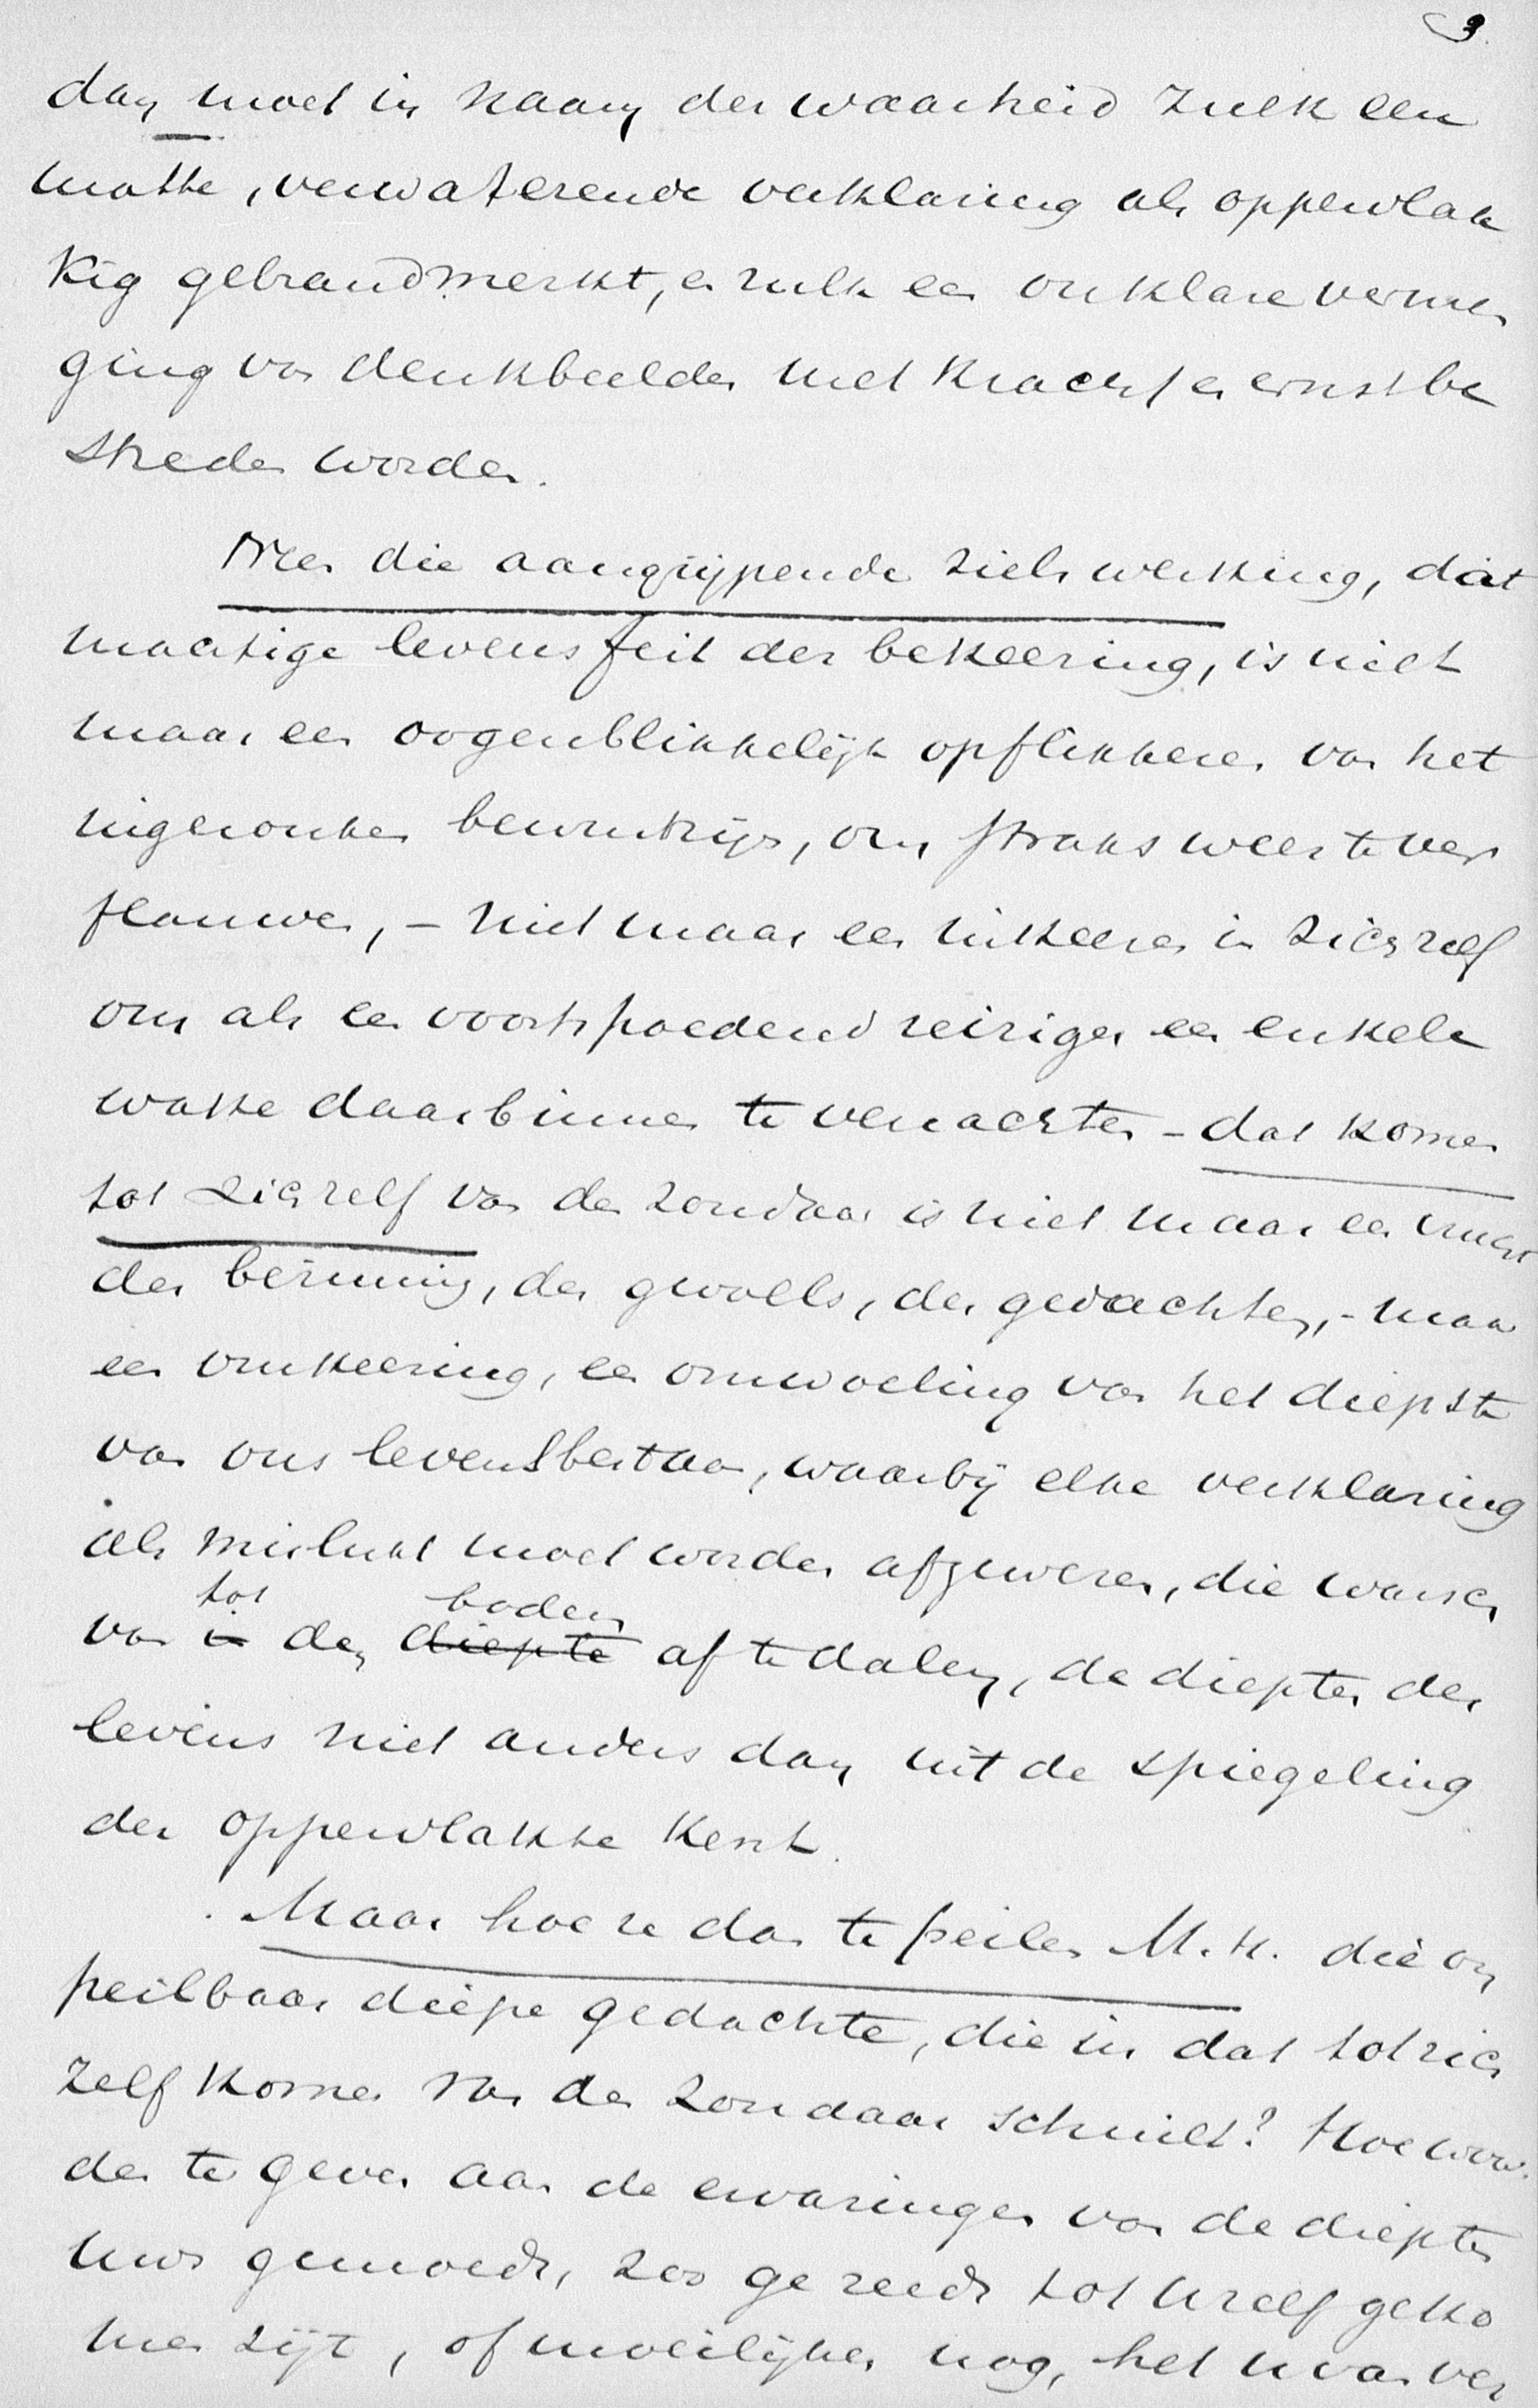 3.
dan moet in naam der waarheid zulk een
matte, verwaterende verklaring als oppervlak
kig gebrandmerkt, en zulk een onklare vermen
ging van denkbeelden met kracht en ernst be
streden worden.
Neen die aangrijpende zielswerking, dat
machtige levensfeit der bekeering, is niet
maar een oogenblikkelijk opflikkeren van het
ingezonken bewustzijn, om straks weer te ver
flauwen, – niet maar een inkeeren in zichzelf
om als een voortspoedend reiziger een enkele
wake daarbinnen te vernachten – dat komen
tot zichzelf van den zondaar is niet maar een vrucht
der bezinning, des gevoels, der gedachten, – maar
een omkeering, een omwoeling van het diepste
van ons levensbestaan, waarbij elke verklaring
als mislukt moet worden afgewezen, die wars
van tot den bodem af te dalen, de diepten des
levens niet anders dan uit de spiegeling
der oppervlakte kent.
Maar hoe ze dan te peilen M.H. die on
peilbaar diepe gedachte, die in dat tot zich
zelf komen van den zondaar schuilt? Hoe woor
den te geven aan de ervaringen van de diepten
uws gemoeds, zoo ge reeds tot uzelf geko
men zijt, of moeilijker nog, het u van ver